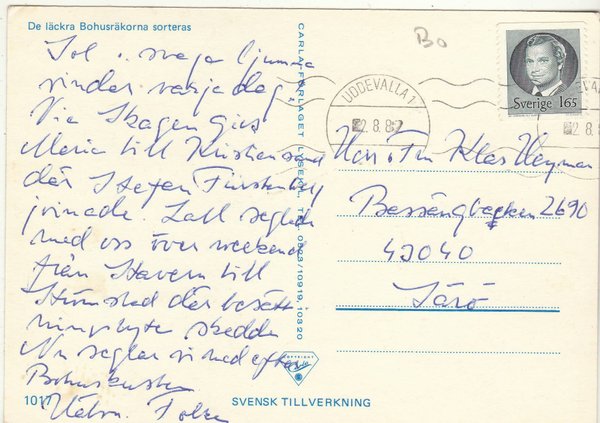 De läckra Bohusräkorna sorteras
Sol, svaga ljumma
vindar varje dag.
Via Skagen gick
Maria till Kristiansand
där Stefan Fürstenberg
joinade. Lall seglade
med oss över weekend
från Stavern till
Strömstad där besätt
ningsbyte skedde
Nu seglar vi ned efter
Bohuskusten
Hälsn.
1017
SVENSK TILLVERKNING
CARLA-FÖRLAGET LYSEKIL, TEL. 0523/10919, 10320
COPYRIGHT
UDDEVALLA 1
2.8.82
Sverige 165
Bo
Herr o Fru Klas Heyman
2690
43040
Särö